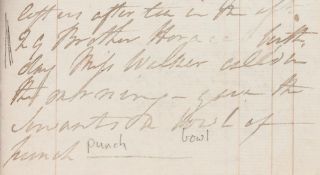 left us after tea in the
29 Brother Horace birth
day Miss Walker called in
the morning - gave the
servants a bowl of
punch punch bowl